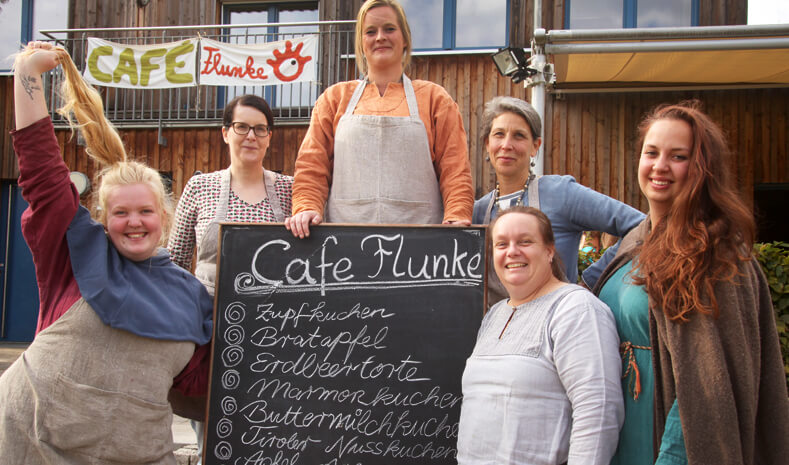 CAFÉ Flunke
Cafe Flunke
Zupfkuchen
Bratapfel
Erdbeertorte
Marmorkuchen
Buttermilchkuchen
Tiroler Nusskuchen
Apfel